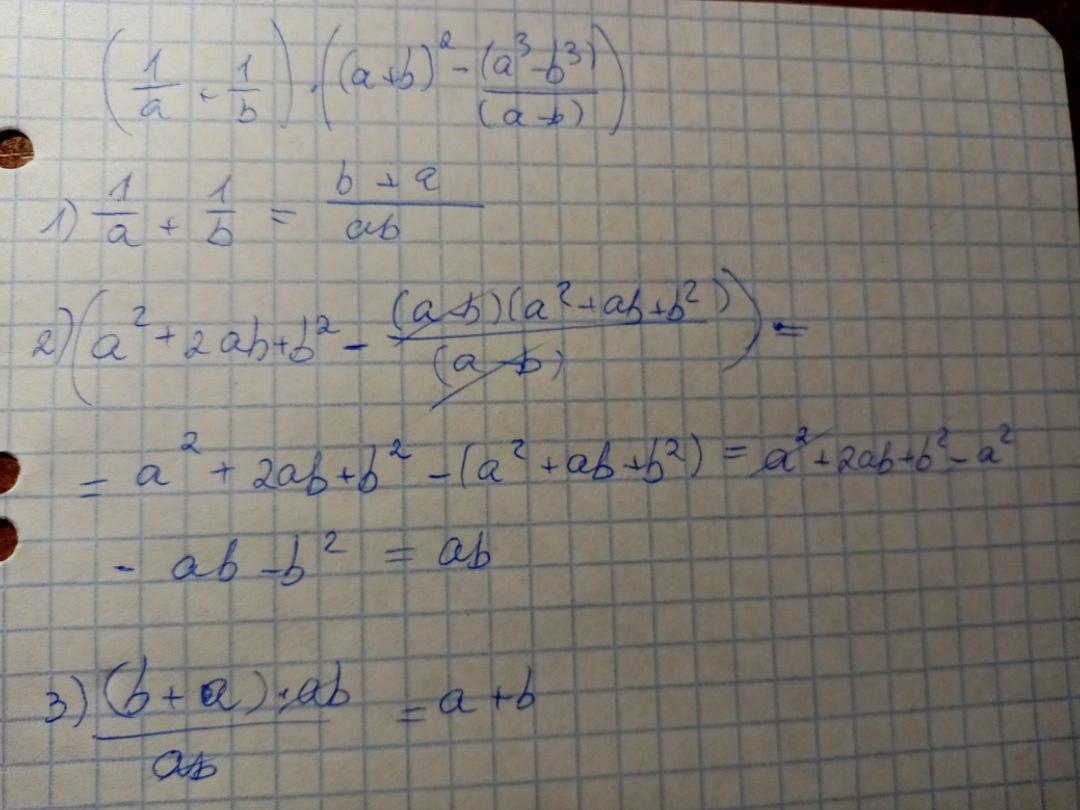 (1/a + 1/b) · ((a+b)² - (a³-b³)/(a-b))
1) 1/a + 1/b = (b+a)/ab
2) (a² + 2ab+b² - (a-b)(a²+ab+b²)/(a-b)) =
= a² + 2ab+b² -(a²+ab+b²) = a²+2ab+b²-a²
- ab -b² = ab
3) (b+a)·ab/ab = a+b